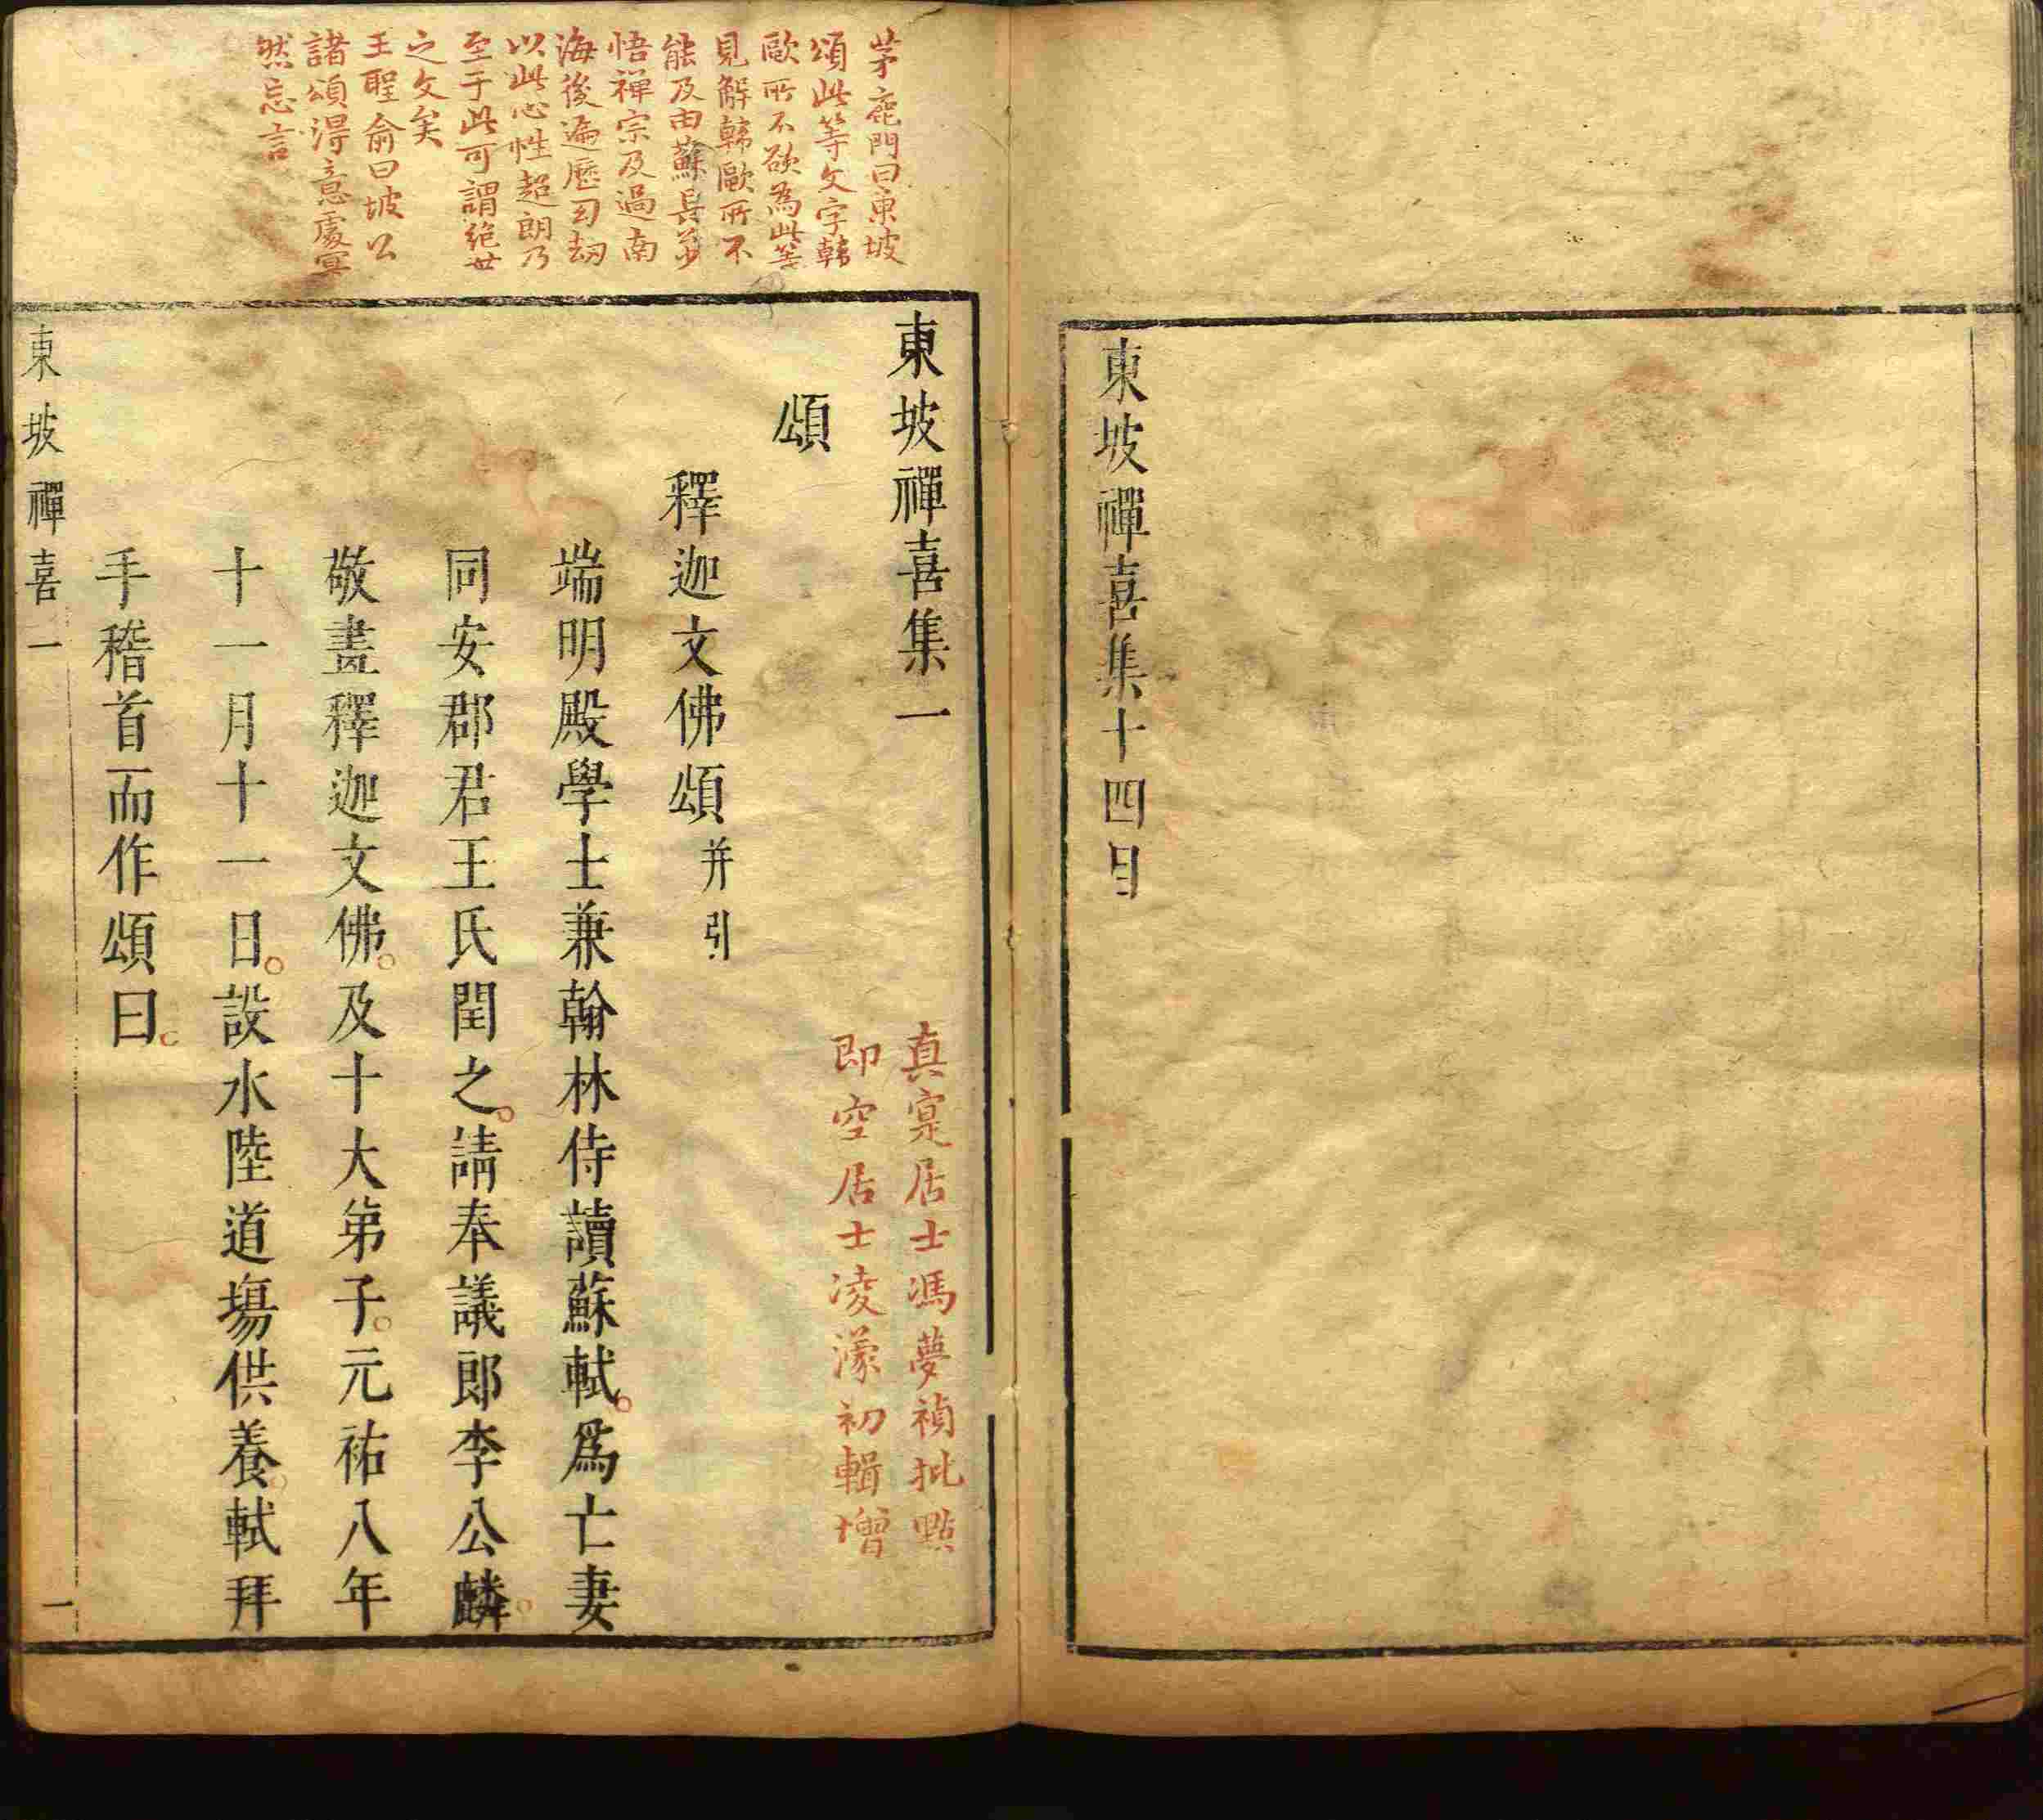 東坡禪喜集十四目
茅鹿門曰東坡
頌此等文字韓
歐所不欲為此等
見解韓歐所不
能及由蘇長公少
悟禪宗及過南
海後遍歷司劫
以此心性超朗乃
至于此可謂絕世
之文矣
王聖俞曰坡公
諸頌得意處冥
然忘言
東坡禪喜集一
真寔居士馮夢禎批點
即空居士凌濛初輯增
頌
釋迦文佛頌并引
端明殿學士兼翰林侍讀蘇軾。為亡妻
同安郡君王氏閏之。請奉議郎李公麟。
敬畫釋迦文佛。及十大弟子。元祐八年
十一月十一日。設水陸道場供養。軾拜
手稽首而作頌曰。
東坡禪喜一
一